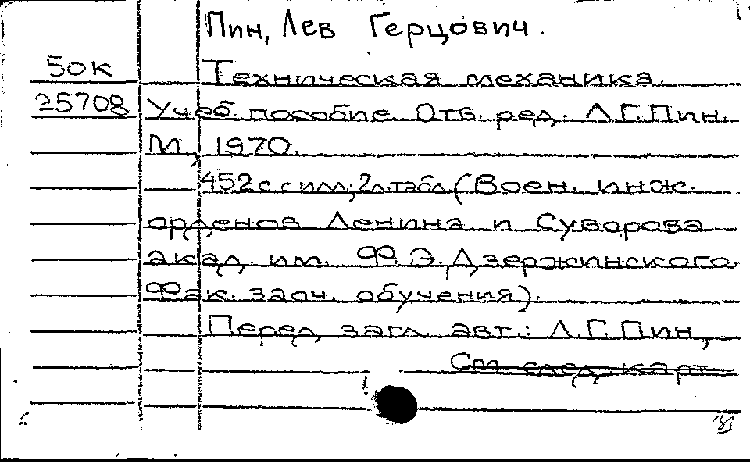 Пин, Лев Герцович.
50К Техническая механика.
25708 Учеб. пособие. Отв. ред. Л.Г.Пин.
М., 1970.
452с. с илл; 2л.табл. (Воен. инж.
орденов Ленина и Суворова
акад. им. Ф.Э.Дзержинского.
Фак. заоч. обучения).
Перед загл. авт.: Л.Г.Пин,
См. след. карт.